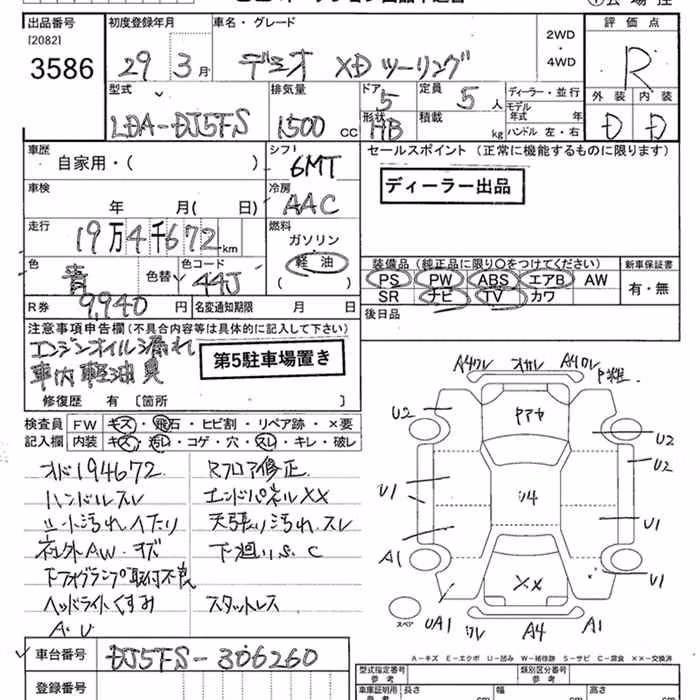 出品番号
[2082]
3586
初度登録年月
29 3月
車名・グレード
デミオ XDツーリング
2WD
・
4WD
評価点
R
外装 内装
D D
型式
LDA-DJ5FS
排気量
1500 cc
ドア
5
定員
5人
形状
HB
積載
kg
ディーラー・並行
モデル
年式 年
ハンドル 左・右
車歴
自家用・( )
シフト
6MT
セールスポイント (正常に機能するものに限ります)
ディーラー出品
車検
年 月( 日)
冷房
AAC
走行
19万4千672km
燃料
ガソリン
軽油
( )
色
青
色替
色コード
44J
装備品 (純正品に限り○をつけてください)
PS PW ABS エアB AW
SR ナビ TV カワ
新車保証書
有・無
R券
9,940円
名変通知期限 月 日
後日品
注意事項申告欄(不具合内容等は具体的に記入して下さい)
エンジンオイル漏れ
車内軽油臭
第5駐車場置き
修復歴 有 〔箇所 〕
検査員
記入欄
FW キズ・飛石・ヒビ割・リペア跡・×要
内装 キズ・汚レ・コゲ・穴・スレ・キレ・破レ
メド194672
ハンドルスレ
シート汚れ.ヘタリ
社外AW・キズ
下フォグランプ取付不良
ヘッドライトくすみ
A・U
Rフロア修正
エンドパネルXX
天張り汚れ.スレ
下廻りS.C
スタットレス
A4ワレ
A4ワレ
U2
U2
U2
U1
U1
A1
U1
UA1
ワレ
A4
A1
リ4
XX
スペア
A-キズ E-エクボ U-凹み W-補修跡 S-サビ C-腐食 ××-交換済
車台番号
DJ5FS-306260
登録番号
型式指定番号
参考
類別区分番号
参考
車庫証明用
参考
長さ
cm
幅
cm
高さ
cm